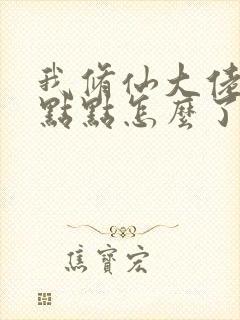 我修仙大佬
點點怎麼了
焦寶宏